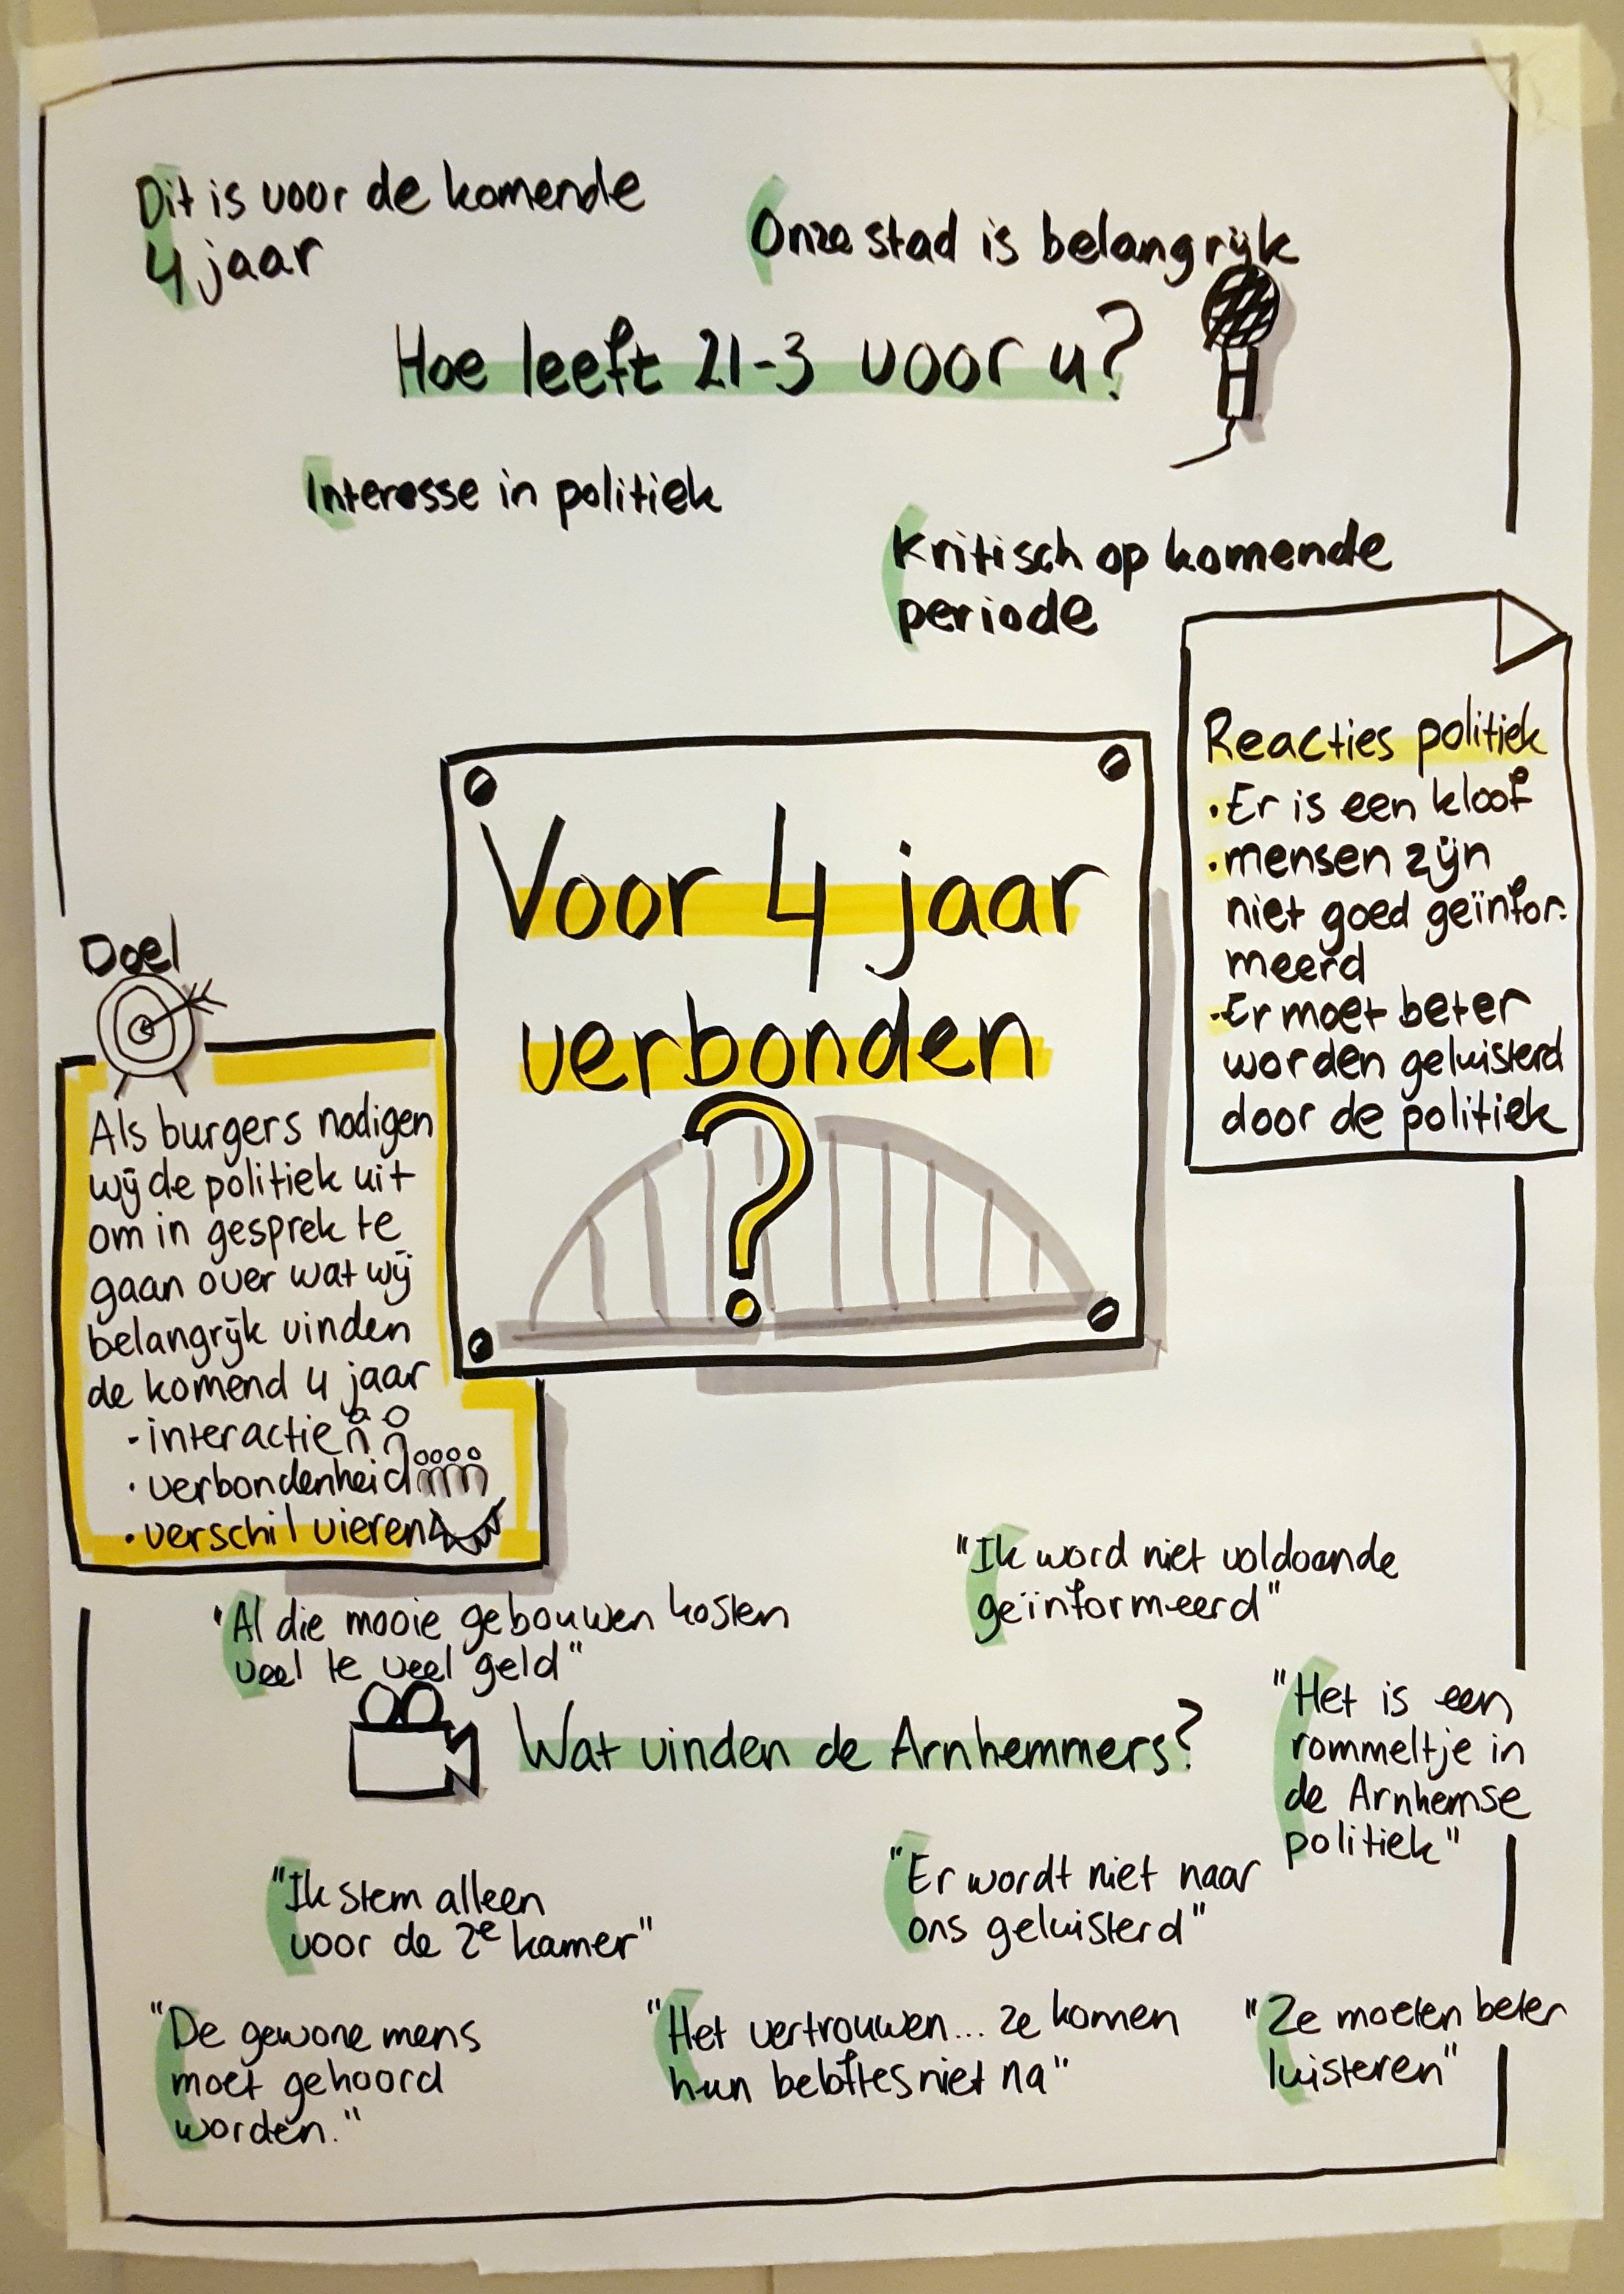 Dit is voor de komende
4 jaar
Onze stad is belangrijk
Hoe leeft 21-3 voor u?
Interesse in politiek
Kritisch op komende
periode
Reacties politiek
• Er is een kloof
• mensen zijn
niet goed geïnfor-
meerd
- Er moet beter
worden geluisterd
door de politiek
Voor 4 jaar
verbonden
?
Doel
Als burgers nodigen
wij de politiek uit
om in gesprek te
gaan over wat wij
belangrijk vinden
de komend 4 jaar
- interactie
• verbondenheid
• verschil vieren
"Ik word niet voldoende
geïnformeerd"
"Al die mooie gebouwen kosten
veel te veel geld"
"Het is een
rommeltje in
de Arnhemse
politiek"
Wat vinden de Arnhemmers?
"Ik stem alleen
voor de 2e kamer"
"Er wordt niet naar
ons geluisterd"
"De gewone mens
moet gehoord
worden."
"Het vertrouwen... ze komen
hun beloftes niet na"
"Ze moeten beter
luisteren"